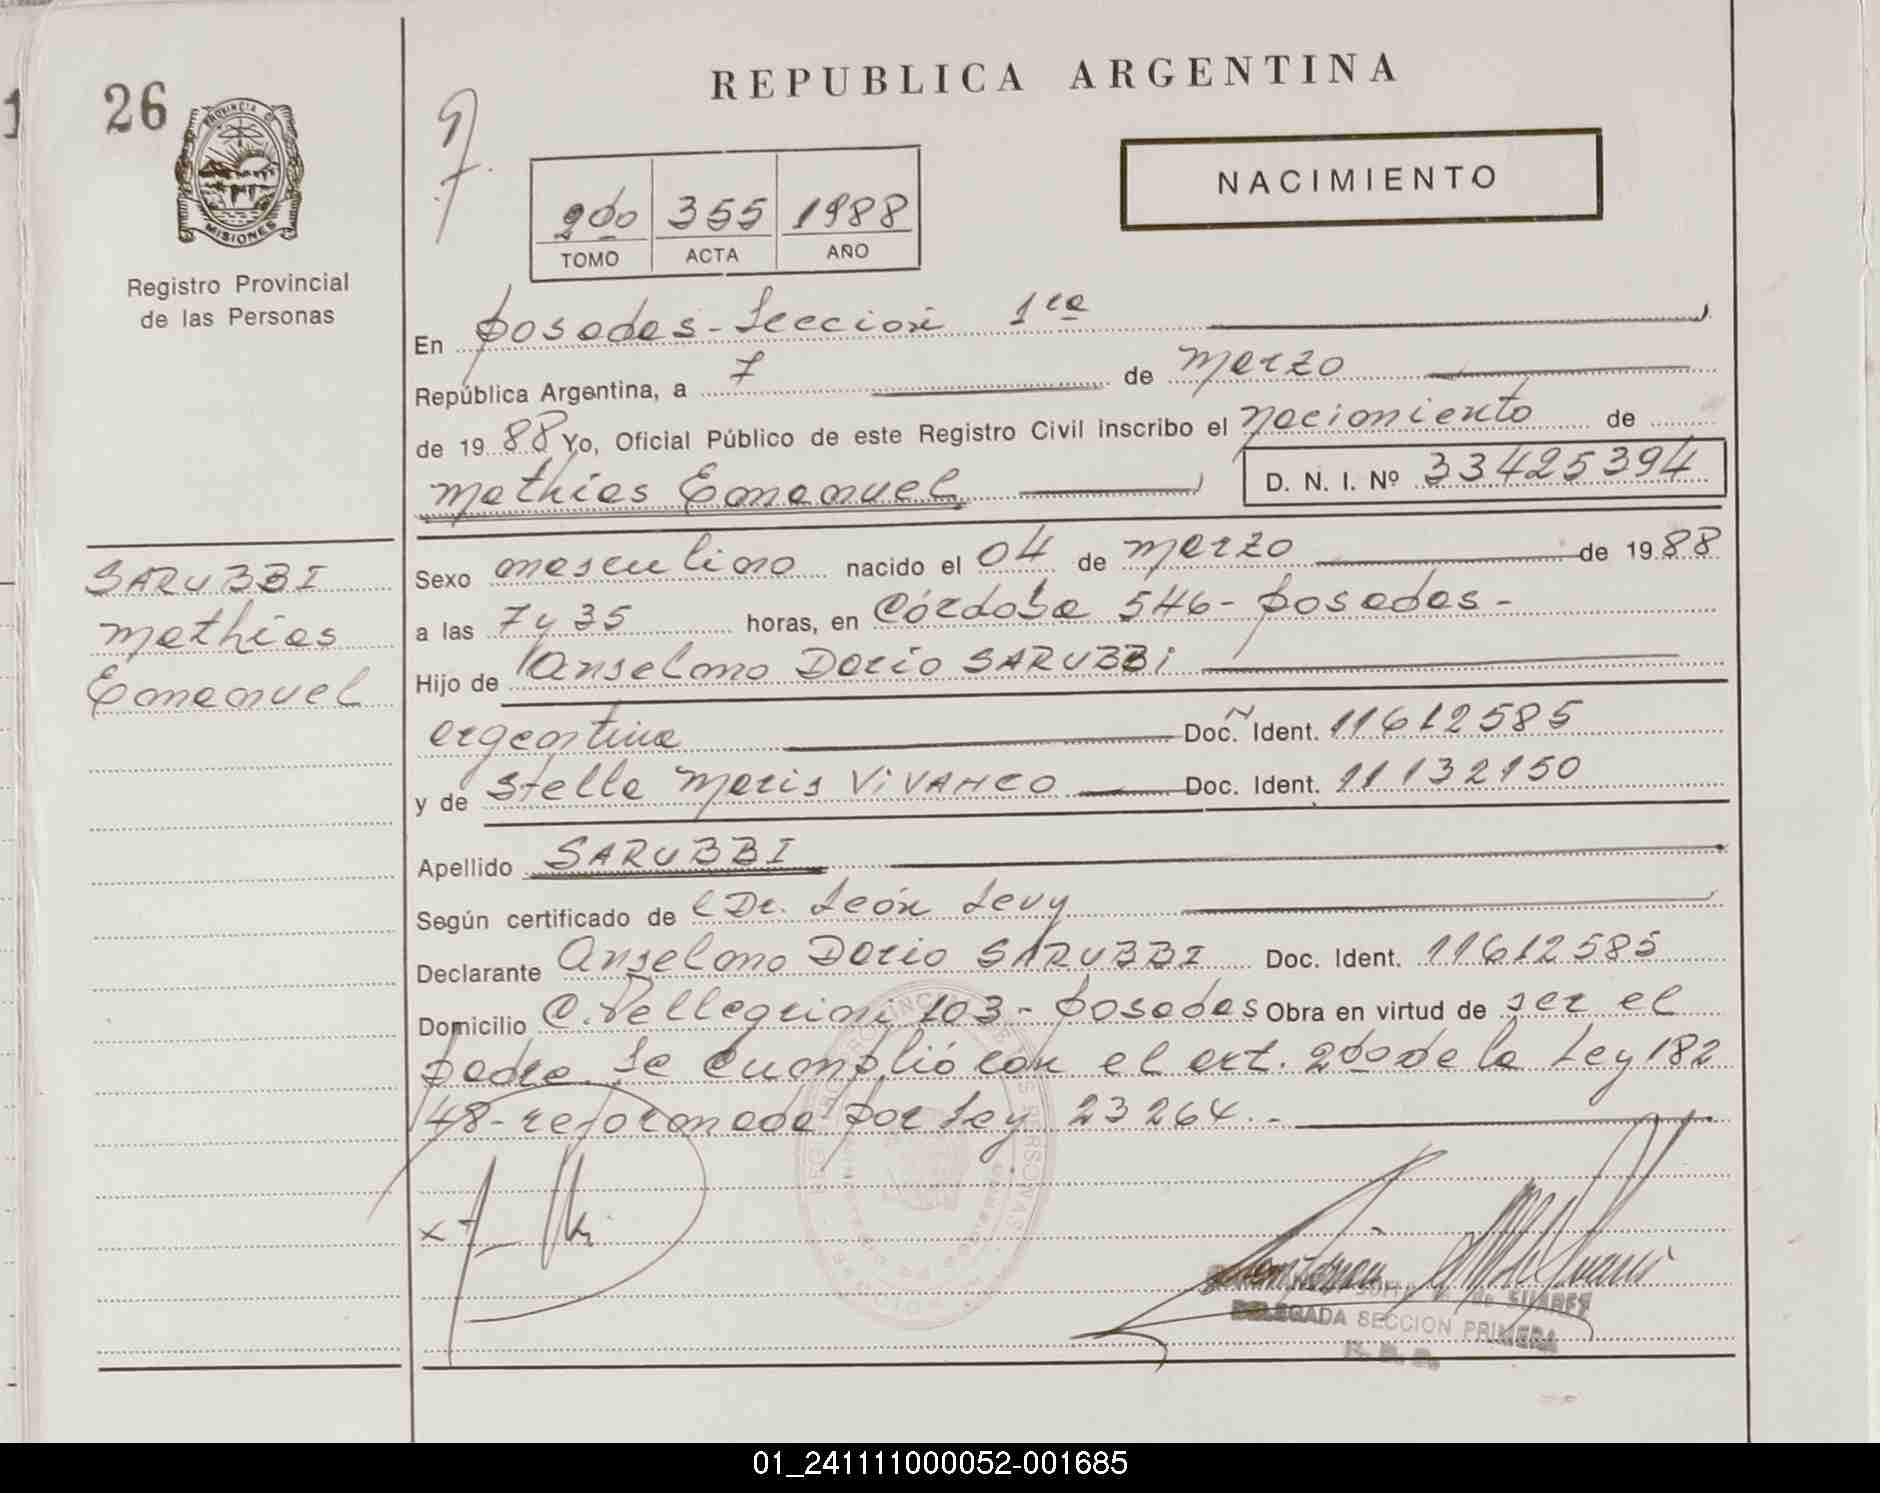 REPUBLICA ARGENTINA
26
PROVINCIA DE
MISIONES
Registro Provincial
de las Personas
NACIMIENTO
2do 355 1988
TOMO ACTA AÑO
En Posadas - Sección 1ra
República Argentina, a 7 de Marzo
de 1988 Yo, Oficial Público de este Registro Civil inscribo el Nacimiento de
Mathias Emanuel D. N. I. Nº 33425394
SARUBBI
Mathias
Emanuel
Sexo masculino nacido el 04 de Marzo de 1988
a las 7 y 35 horas, en Córdoba 546 - Posadas -
Hijo de Anselmo Dario SARUBBI
argentina Doc. Ident. 11612585
y de Stella Maris VIVANCO Doc. Ident. 11132150
Apellido SARUBBI
Según certificado de Dr. León Levy
Declarante Anselmo Dario SARUBBI Doc. Ident. 11612585
Domicilio C. Pellegrini 103 - Posadas Obra en virtud de ser el
padre. Se cumplió con el art. 2do de la Ley 182
48 - reformada por Ley 23264. -
SUAREZ
DELEGADA SECCION PRIMERA
01_241111000052-001685